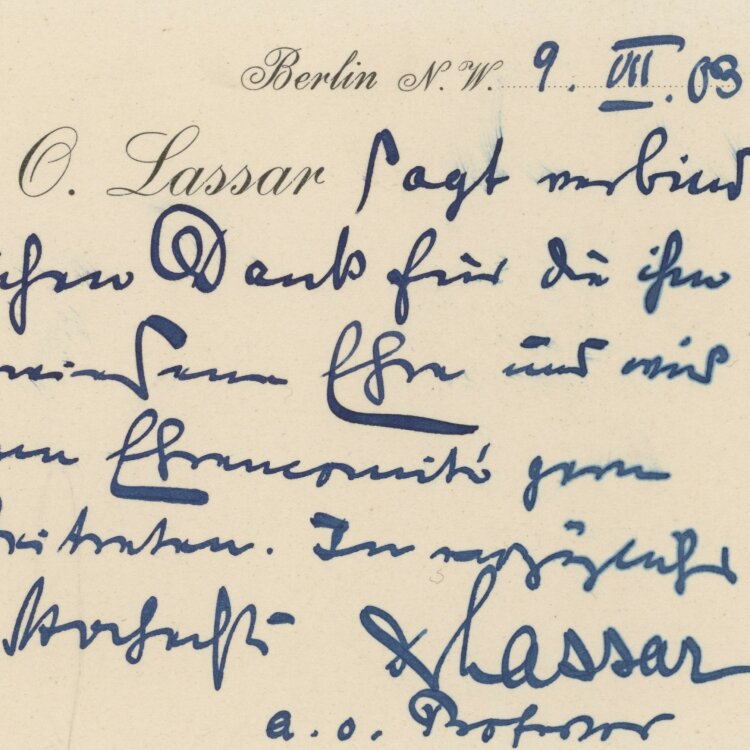 Berlin N.W. 9. VII. 03
O. Lassar sagt verbind
ichen Dank für die ihm
wiesene Ehre und wird
em Ehrencomité gern
beitreten. In vorzüglicher
Hochacht
Lassar
a. o. Professor